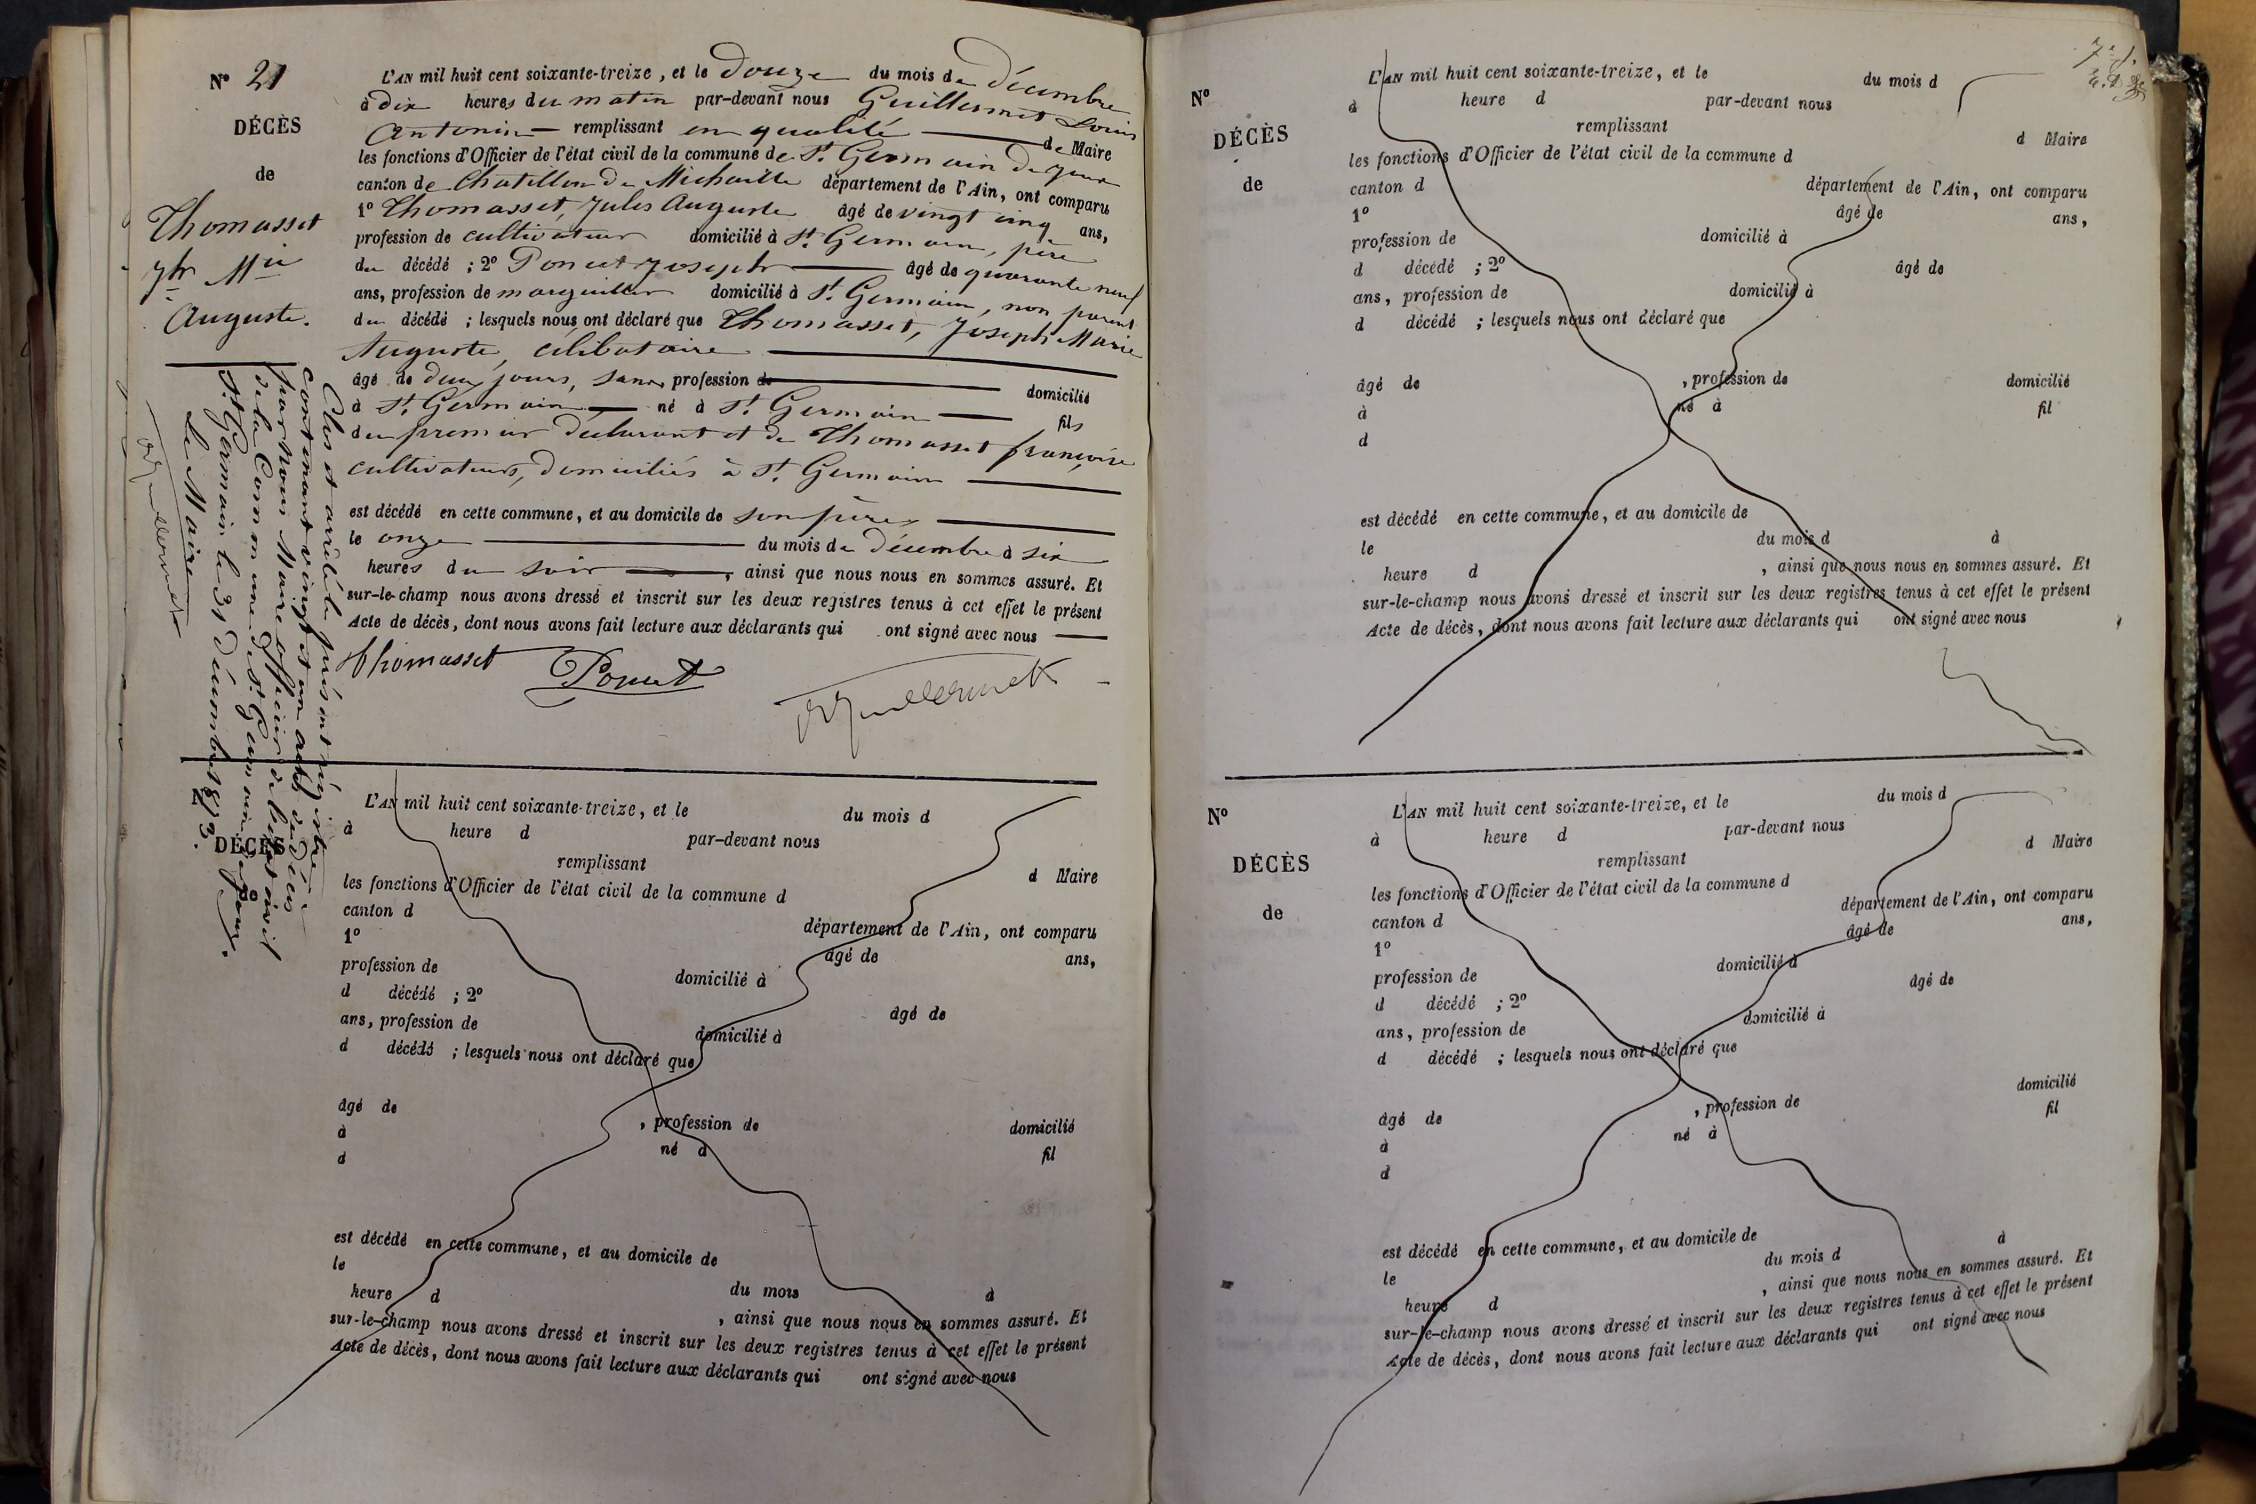 N° 21
DÉCÈS
de
Thomasset
Jph Mie
Auguste.
L'AN mil huit cent soixante-treize, et le douze du mois de Décembre
à dix heures du matin par-devant nous Guillermet Louis
Antonin — remplissant en qualité — de Maire
les fonctions d'Officier de l'état civil de la commune de St. Germain de Joux
canton de Chatillon de Michaille département de l'Ain, ont comparu
1° Thomasset, Jules Auguste âgé de vingt cinq ans,
profession de cultivateur domicilié à St. Germain, père
du décédé ; 2° Poncet Joseph — âgé de quarante neuf
ans, profession de marguillier domicilié à St. Germain, non parent
du décédé ; lesquels nous ont déclaré que Thomasset, Joseph Marie
Auguste, célibataire —
âgé de deux jours, sans profession de — domicilié
à St. Germain — né à St. Germain — fils
du premier déclarant et de Thomasset françoise
cultivateurs, domiciliés à St. Germain —
est décédé en cette commune, et au domicile de son père, —
le onze — du mois de Décembre à six
heures du soir —, ainsi que nous nous en sommes assuré. Et
sur-le-champ nous avons dressé et inscrit sur les deux registres tenus à cet effet le présent
Acte de décès, dont nous avons fait lecture aux déclarants qui ont signé avec nous —
Thomasset Poncet Guillermet
Clos et arrêté le présent régistre
contenant vingt et un actes de décès
par nous Maire officier de l'état civil
de la Commune de St. Germain de Joux,
St. Germain le 31 Décembre 1873.
Le Maire
Guillermet
N°
DÉCÈS
de
L'AN mil huit cent soixante-treize, et le du mois d
à heure d par-devant nous
remplissant d Maire
les fonctions d'Officier de l'état civil de la commune d
canton d département de l'Ain, ont comparu
1° âgé de ans,
profession de domicilié à
d décédé ; 2° âgé de
ans, profession de domicilié à
d décédé ; lesquels nous ont déclaré que
âgé de , profession de domicilié
à né à fil
d
est décédé en cette commune, et au domicile de
le du mois d à
heure d , ainsi que nous nous en sommes assuré. Et
sur-le-champ nous avons dressé et inscrit sur les deux registres tenus à cet effet le présent
Acte de décès, dont nous avons fait lecture aux déclarants qui ont signé avec nous
N°
DÉCÈS
de
L'AN mil huit cent soixante-treize, et le du mois d
à heure d par-devant nous
remplissant d Maire
les fonctions d'Officier de l'état civil de la commune d
canton d département de l'Ain, ont comparu
1° âgé de ans,
profession de domicilié à
d décédé ; 2° âgé de
ans, profession de domicilié à
d décédé ; lesquels nous ont déclaré que
âgé de , profession de domicilié
à né à fil
d
est décédé en cette commune, et au domicile de
le du mois d à
heure d , ainsi que nous nous en sommes assuré. Et
sur-le-champ nous avons dressé et inscrit sur les deux registres tenus à cet effet le présent
Acte de décès, dont nous avons fait lecture aux déclarants qui ont signé avec nous
N°
DÉCÈS
de
L'AN mil huit cent soixante-treize, et le du mois d
à heure d par-devant nous
remplissant d Maire
les fonctions d'Officier de l'état civil de la commune d
canton d département de l'Ain, ont comparu
1° âgé de ans,
profession de domicilié à
d décédé ; 2° âgé de
ans, profession de domicilié à
d décédé ; lesquels nous ont déclaré que
âgé de , profession de domicilié
à né à fil
d
est décédé en cette commune, et au domicile de
le du mois d à
heure d , ainsi que nous nous en sommes assuré. Et
sur-le-champ nous avons dressé et inscrit sur les deux registres tenus à cet effet le présent
Acte de décès, dont nous avons fait lecture aux déclarants qui ont signé avec nous